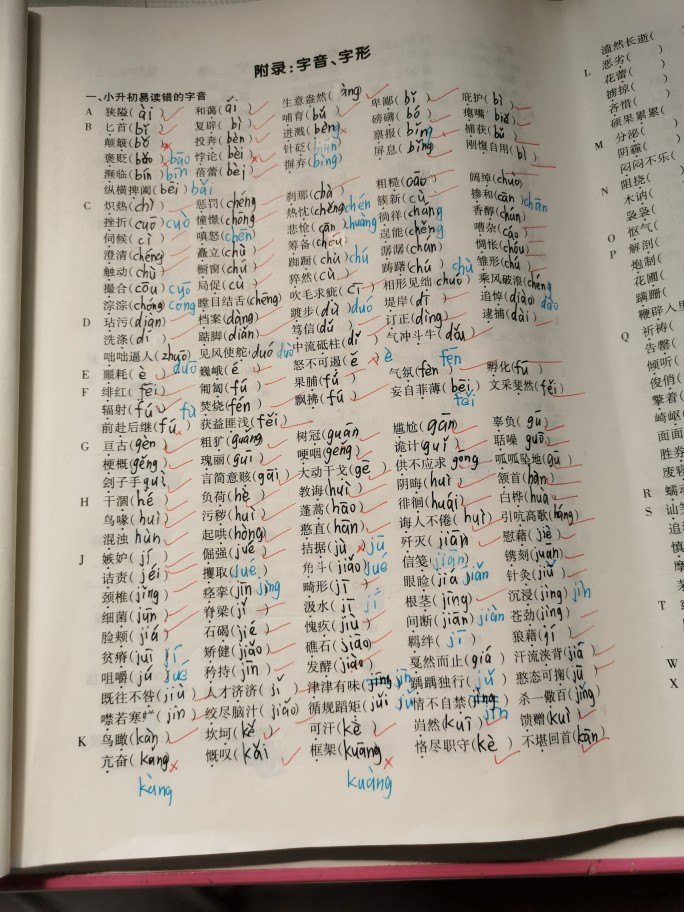 附录:字音、字形
一、小升初易读错的字音
A 狭隘(ài) 和蔼(ǎi) 生意盎然(àng) 卑鄙(bǐ) 庇护(bì)
B 匕首(bǐ) 复辟(bì) 哺育(bǔ) 磅礴(bó)
颠簸(bǒ) 投奔(bèn) 迸溅(bèng) 禀报(bǐng) 捕获(bǔ)
褒贬(bāo) bāo 悖论(bèi) 针砭(biān) 屏息(bǐng) 刚愎自用(bì)
濒临(bīn) bīn 蓓蕾(bèi) 摒弃(bìng)
纵横捭阖(bēi) bǎi 粗糙(cāo) 阔绰(chuò)
C 炽热(chì) 惩罚(chéng) 刹那(chà) 簇新(cù) 掺和(cān) chān
挫折(cuō) cuò 憧憬(chōng) 热忱(chěng) chén 徜徉(cháng) 香醇(chún)
伺候(cì) 嗔怒(chēn) 悲怆(cān) chuàng 逞能(chěng) 嘈杂(cáo)
澄清(chéng) 矗立(chù) 筹备(chóu) 潺潺(chán) 惆怅(chóu)
触动(chù) 橱窗(chú) 踟蹰(chú) chú 踌躇(chú) chú 雏形(chú)
撮合(cōu) cuō 局促(cù) 猝然(cù) 相形见绌(chuò) 乘风破浪(chéng)
淙淙(chóng) cóng 瞠目结舌(chēng) 吹毛求疵(cī) 堤岸(dī) 追悼(diào) dào
D 玷污(diàn) 档案(dàng) 踱步(dù) duó 订正(dìng) 逮捕(dài)
洗涤(dí) 踮脚(diǎn) 笃信(dǔ) 气冲斗牛(dǒu)
咄咄逼人(zhuō) duō 见风使舵(duó) duò 中流砥柱(dǐ)
E 噩耗(è) 巍峨(é) 怒不可遏(ě) è 气氛(fèn) fēn 孵化(fū)
F 绯红(fēi) 匍匐(fú) 果脯(fǔ) 妄自菲薄(bēi) fěi 文采斐然(fěi)
辐射(fú) fú 焚烧(fén) 飘拂(fú)
前赴后继(fú) 获益匪浅(fěi) 尴尬(gān) 辜负(gū)
G 亘古(gèn) 粗犷(guǎng) 树冠(guān) 诡计(guǐ) 聒噪 guō
梗概(gěng) 瑰丽(guī) 哽咽(gěng) 供不应求 gōng 呱呱坠地(gū)
刽子手 guì 言简意赅(gāi) 大动干戈(gē) 阴晦(huì) 颔首(hàn)
H 干涸(hé) 负荷(hè) 教诲(huì) 徘徊(huái) 白桦(huà)
鸟喙(huì) 污秽(huì) 蓬蒿(hāo) 诲人不倦(huì) 引吭高歌(háng)
混浊 hùn 起哄(hòng) 憨直(hān) 歼灭(jiān) 慰藉(jiè)
J 嫉妒(jí) 倔强(jué) 拮据(jù) jū 信笺(jiān) 镌刻(juān)
诘责(jéi) 攫取(jué) 角斗(jiǎo) jué 眼睑(jiá) jiǎn 针灸(jiǔ)
颈椎(jǐng) 痉挛(jīn) jìng 畸形(jī) 根茎(jīng) 沉浸(jìng) jìn
细菌(jūn) 脊梁(jǐ) 汲水(jī) jí 间断(jiān) jiàn 苍劲(jìng)
脸颊(jiá) 石碣(jié) 愧疚(jiù) 羁绊(jī) 狼藉(jí)
贫瘠(juī) jí 矫健(jiǎo) 礁石(jiāo) 戛然而止(jiá) 汗流浃背(jiā)
咀嚼(jú) jué 矜持(jīn) 发酵(jiào) 踽踽独行(jǔ) 憨态可掬(jū)
既往不咎(jiù) 人才济济(jǐ) 津津有味(jīng) jīn 情不自禁(jīng) jīn 杀一儆百(jǐng)
噤若寒蝉(jìn) 绞尽脑汁(jiǎo) 循规蹈矩(jǔ) jǔ 岿然(kuī) 馈赠(kuì)
K 鸟瞰(kàn) 坎坷(kě) 可汗(kè) 恪尽职守(kè) 不堪回首(kān)
亢奋(káng) 慨叹(kǎi) 框架(kuāng)
kàng kuàng
溘然长逝(
L 恶劣( )
花蕾( )
掳掠( )
吝惜( )
硕果累累(
M 分泌( )
阴霾( )
闷闷不乐(
N 阻挠( )
木讷(
袅袅(
O 怄气(
P 解剖(
炮制(
花圃(
蹒跚(
鞭辟入里
Q 祈祷(
告罄(
倾听(
俊俏(
擎着(
崎岖
面面
胜券
废寝
R 蠕动
S 讪笑
追
慎
摩
T
W
X